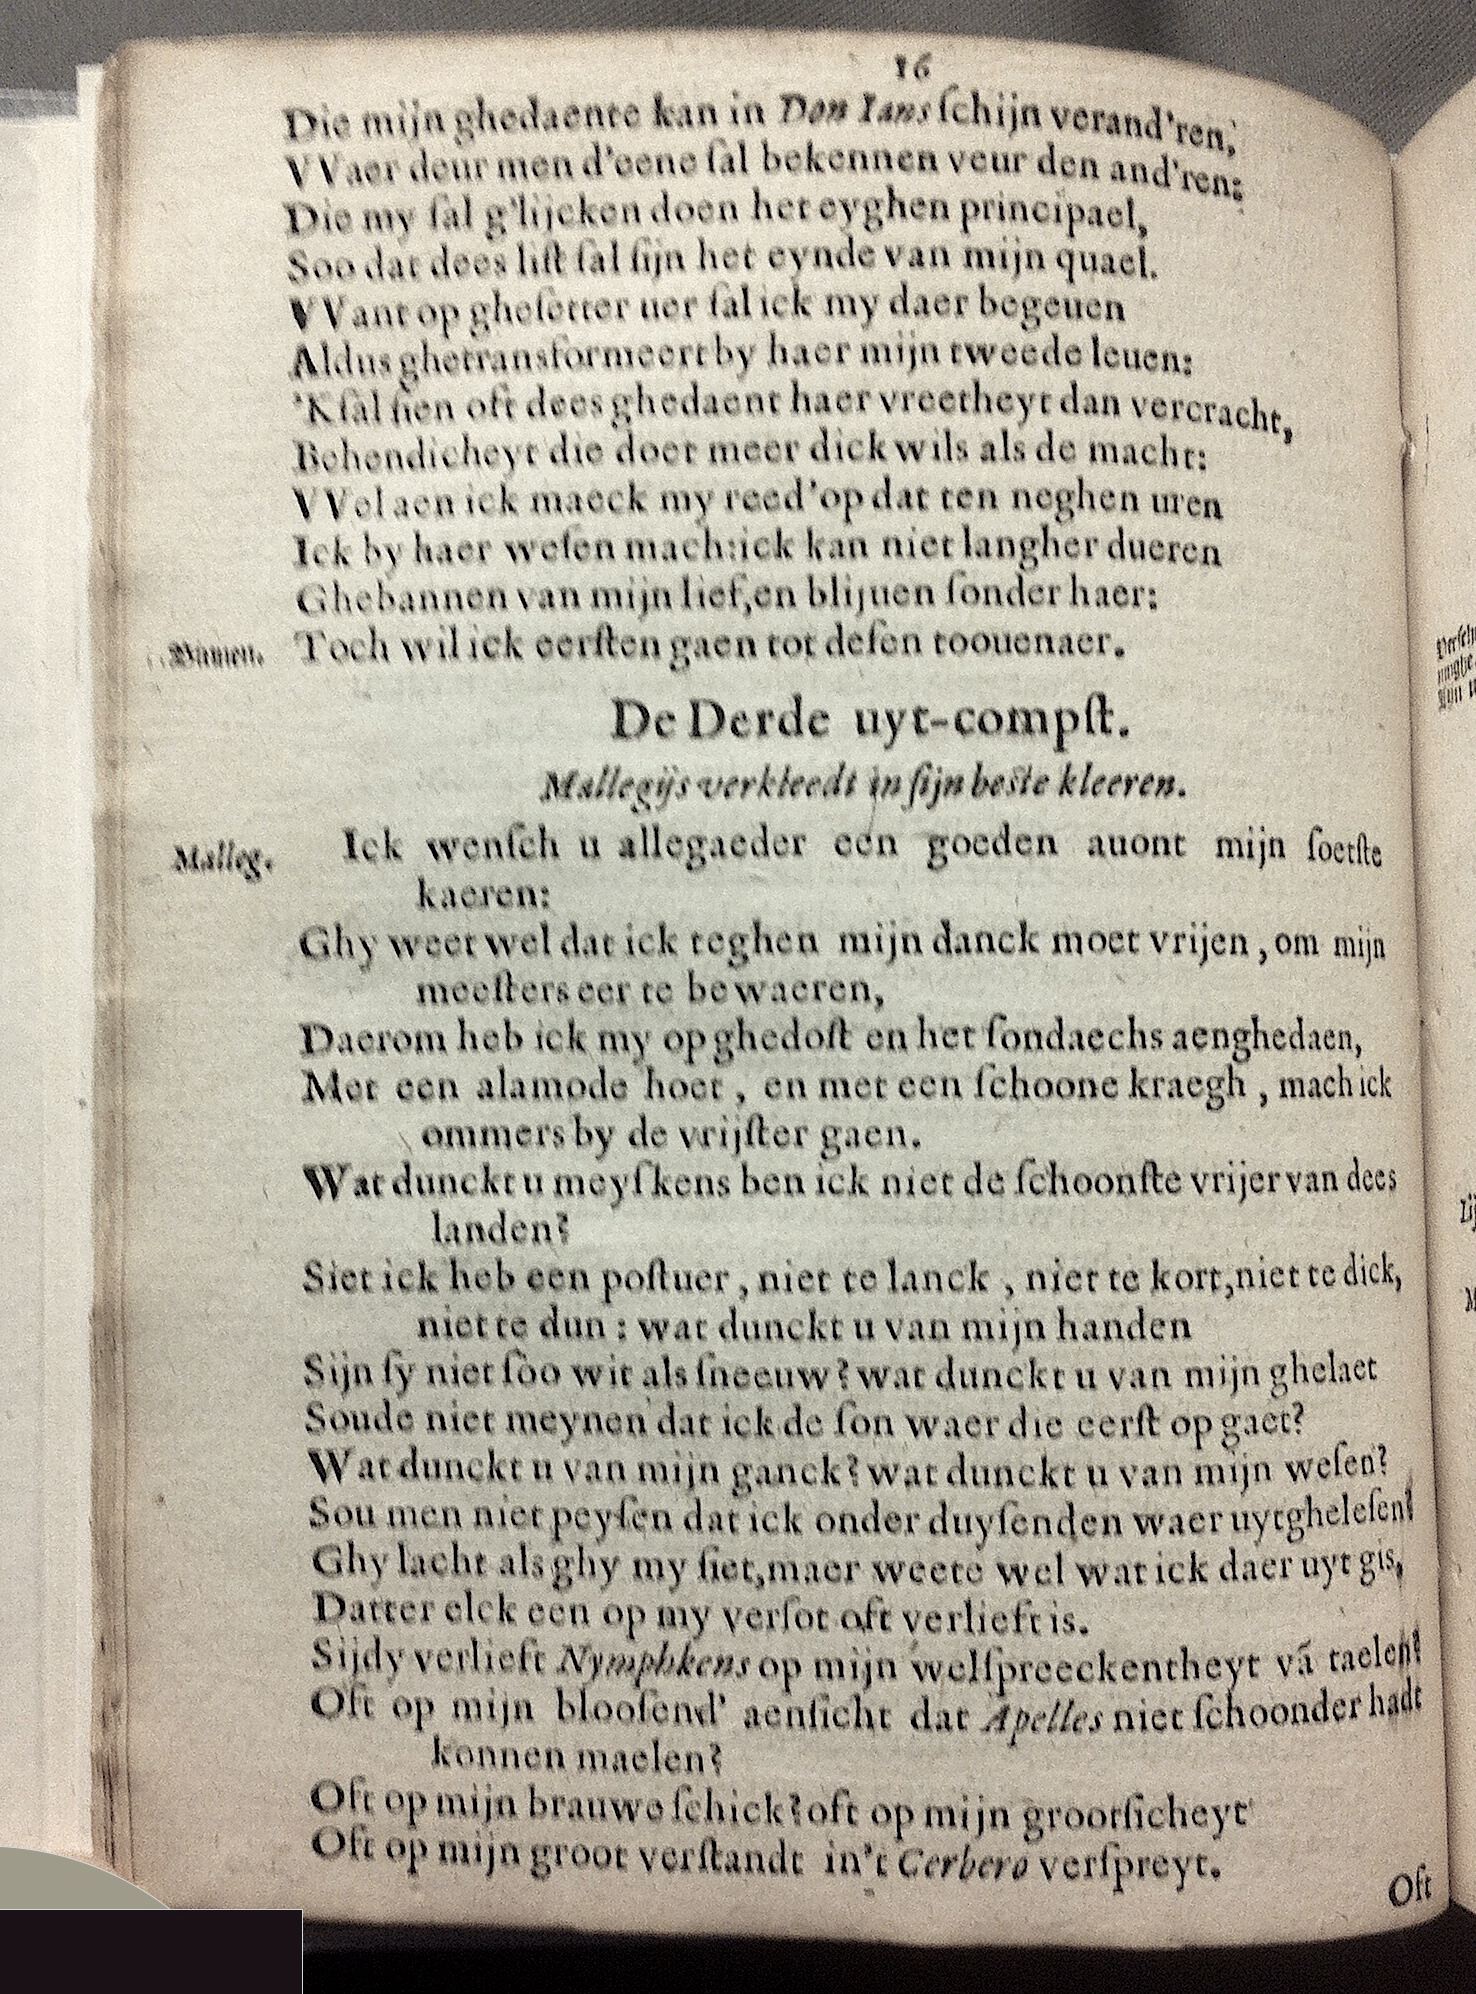 16
Die mijn ghedaente kan in Don Ians ſchijn verand'ren,
VVaer deur men d'eene ſal bekennen veur den and'ren;
Die my ſal g'lijcken doen het eyghen principael,
Soo dat dees liſt ſal ſijn het eynde van mijn quael.
VVant op gheſetter uer ſal ick my daer begeuen
Aldus ghetransformeert by haer mijn tweede leuen:
'K ſal ſien oft dees ghedaent haer vreetheyt dan vercracht,
Behendicheyt die doet meer dickwils als de macht:
VVel aen ick maeck my reed' op dat ten neghen uren
Ick by haer weſen mach: ick kan niet langher dueren
Ghebannen van mijn lief, en blijuen ſonder haer:
Binnen. Toch wil ick eerſten gaen tot deſen toouenaer.
De Derde uyt-compſt.
Mallegijs verkleedt in ſijn beſte kleeren.
Malleg. Ick wenſch u allegaeder een goeden auont mijn ſoetſte
kaeren:
Ghy weet wel dat ick teghen mijn danck moet vrijen, om mijn
meeſters eer te bewaeren,
Daerom heb ick my op ghedoſt en het ſondaechs aenghedaen,
Met een alamode hoet, en met een ſchoone kraegh, mach ick
ommers by de vrijſter gaen.
Wat dunckt u meyſkens ben ick niet de ſchoonſte vrijer van dees
landen?
Siet ick heb een poſtuer, niet te lanck, niet te kort, niet te dick,
niet te dun: wat dunckt u van mijn handen
Sijn ſy niet ſoo wit als ſneeuw? wat dunckt u van mijn ghelaet
Soude niet meynen dat ick de ſon waer die eerſt op gaet?
Wat dunckt u van mijn ganck? wat dunckt u van mijn weſen?
Sou men niet peyſen dat ick onder duyſenden waer uytgheleſen?
Ghy lacht als ghy my ſiet, maer weete wel wat ick daer uyt gis,
Datter elck een op my verſot oft verlieft is.
Sijdy verlieft Nymphkens op mijn welſpreeckentheyt vã taelen?
Oft op mijn blooſend' aenſicht dat Apelles niet ſchoonder hadt
konnen maelen?
Oft op mijn brauwe ſchick? oft op mijn grootſicheyt
Oft op mijn groot verſtandt in't Cerbero verſpreyt.
Oft